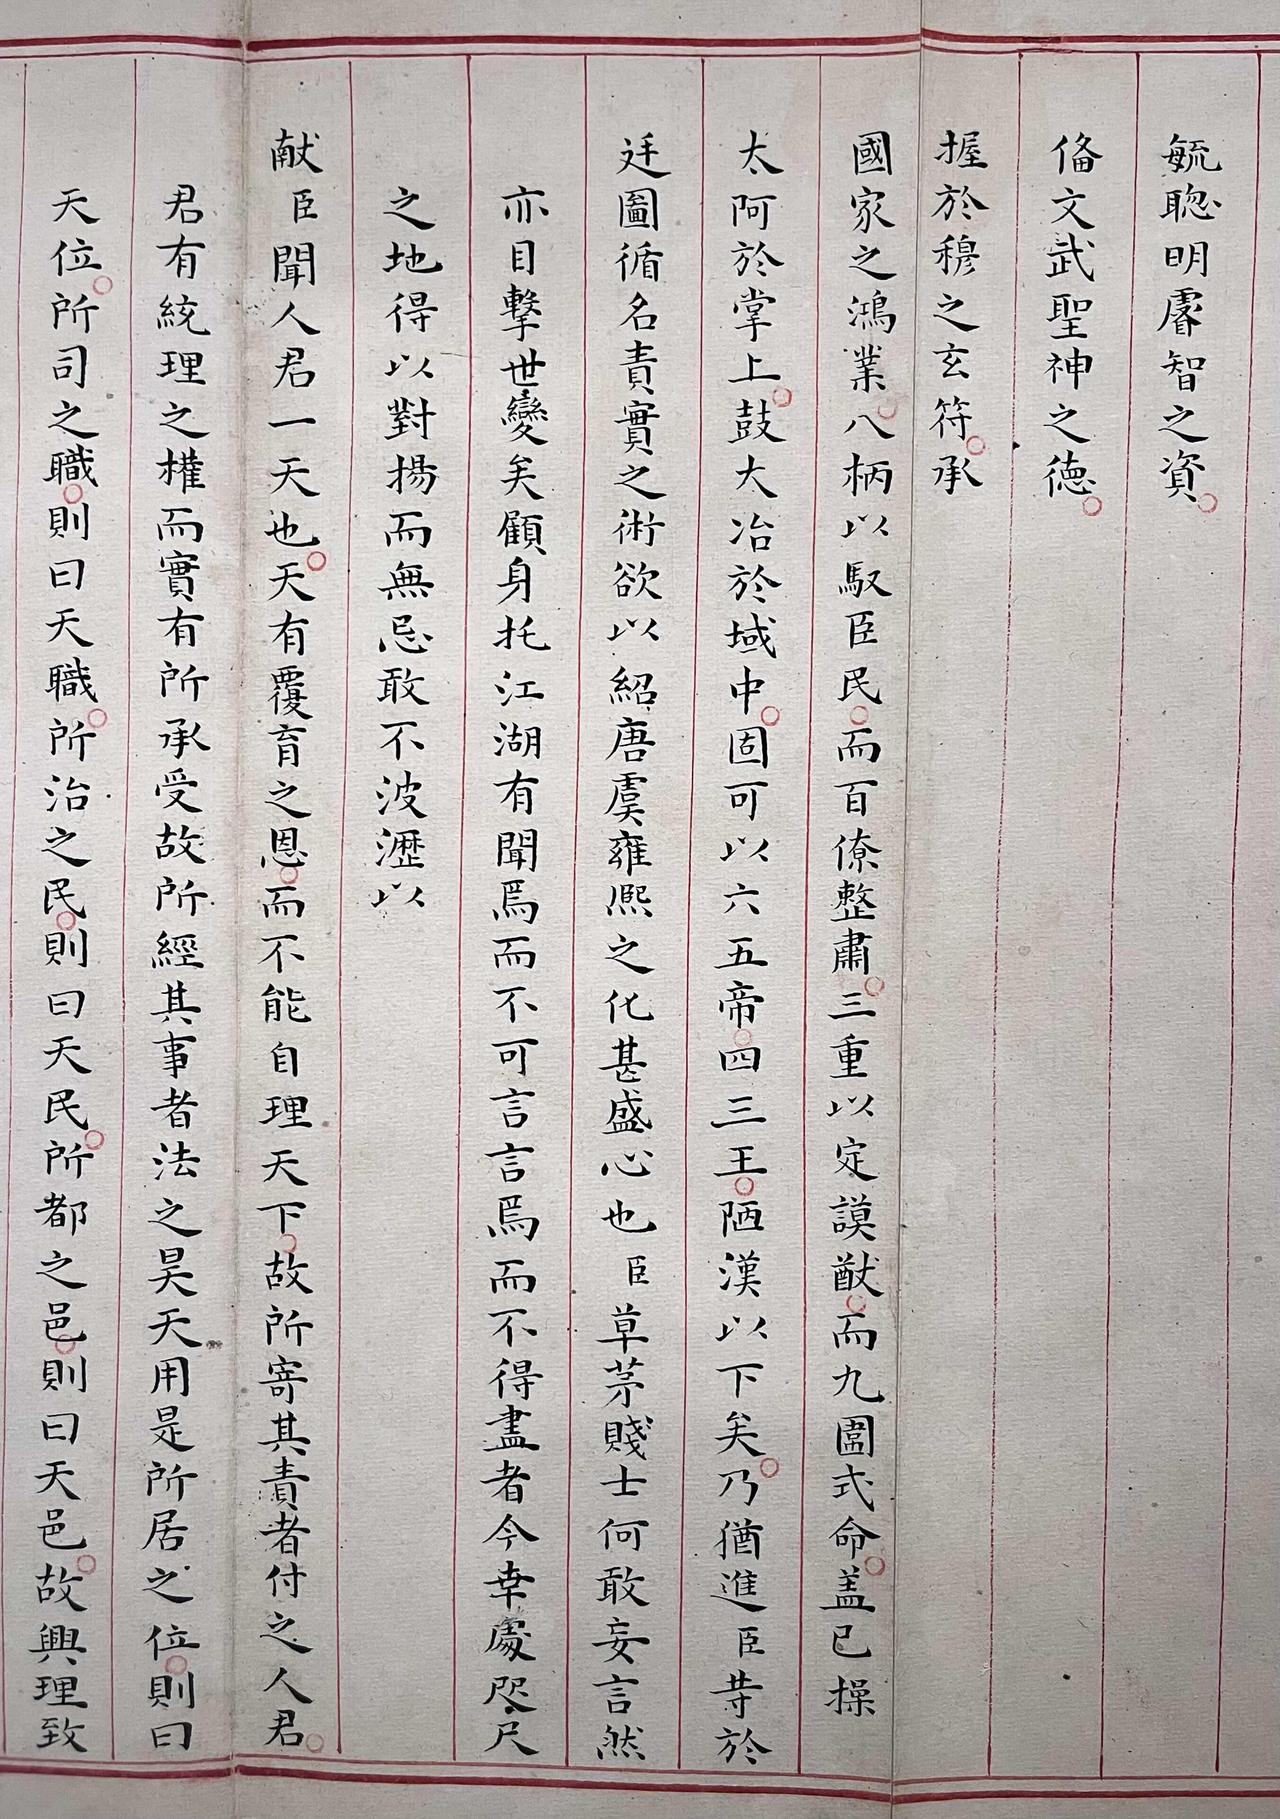 毓聰明睿智之資
備文武聖神之德
握於穆之玄符承
國家之鴻業八柄以馭臣民而百僚整肅三重以定謨猷而九圍式命盖已操
太阿於掌上鼓大冶於域中固可以六五帝四三王陋漢以下矣乃猶進臣等於
廷圖循名責實之術欲以紹唐虞雍熙之化甚盛心也臣草茅賤士何敢妄言然
亦目擊世變矣顧身托江湖有聞焉而不可言言焉而不得盡者今幸處咫尺
之地得以對揚而無忌敢不披瀝以
献臣聞人君一天也天有覆育之恩而不能自理天下故所寄其責者付之人君
君有統理之權而實有所承受故所經其事者法之昊天用是所居之位則曰
天位所司之職則曰天職所治之民則曰天民所都之邑則曰天邑故興理致